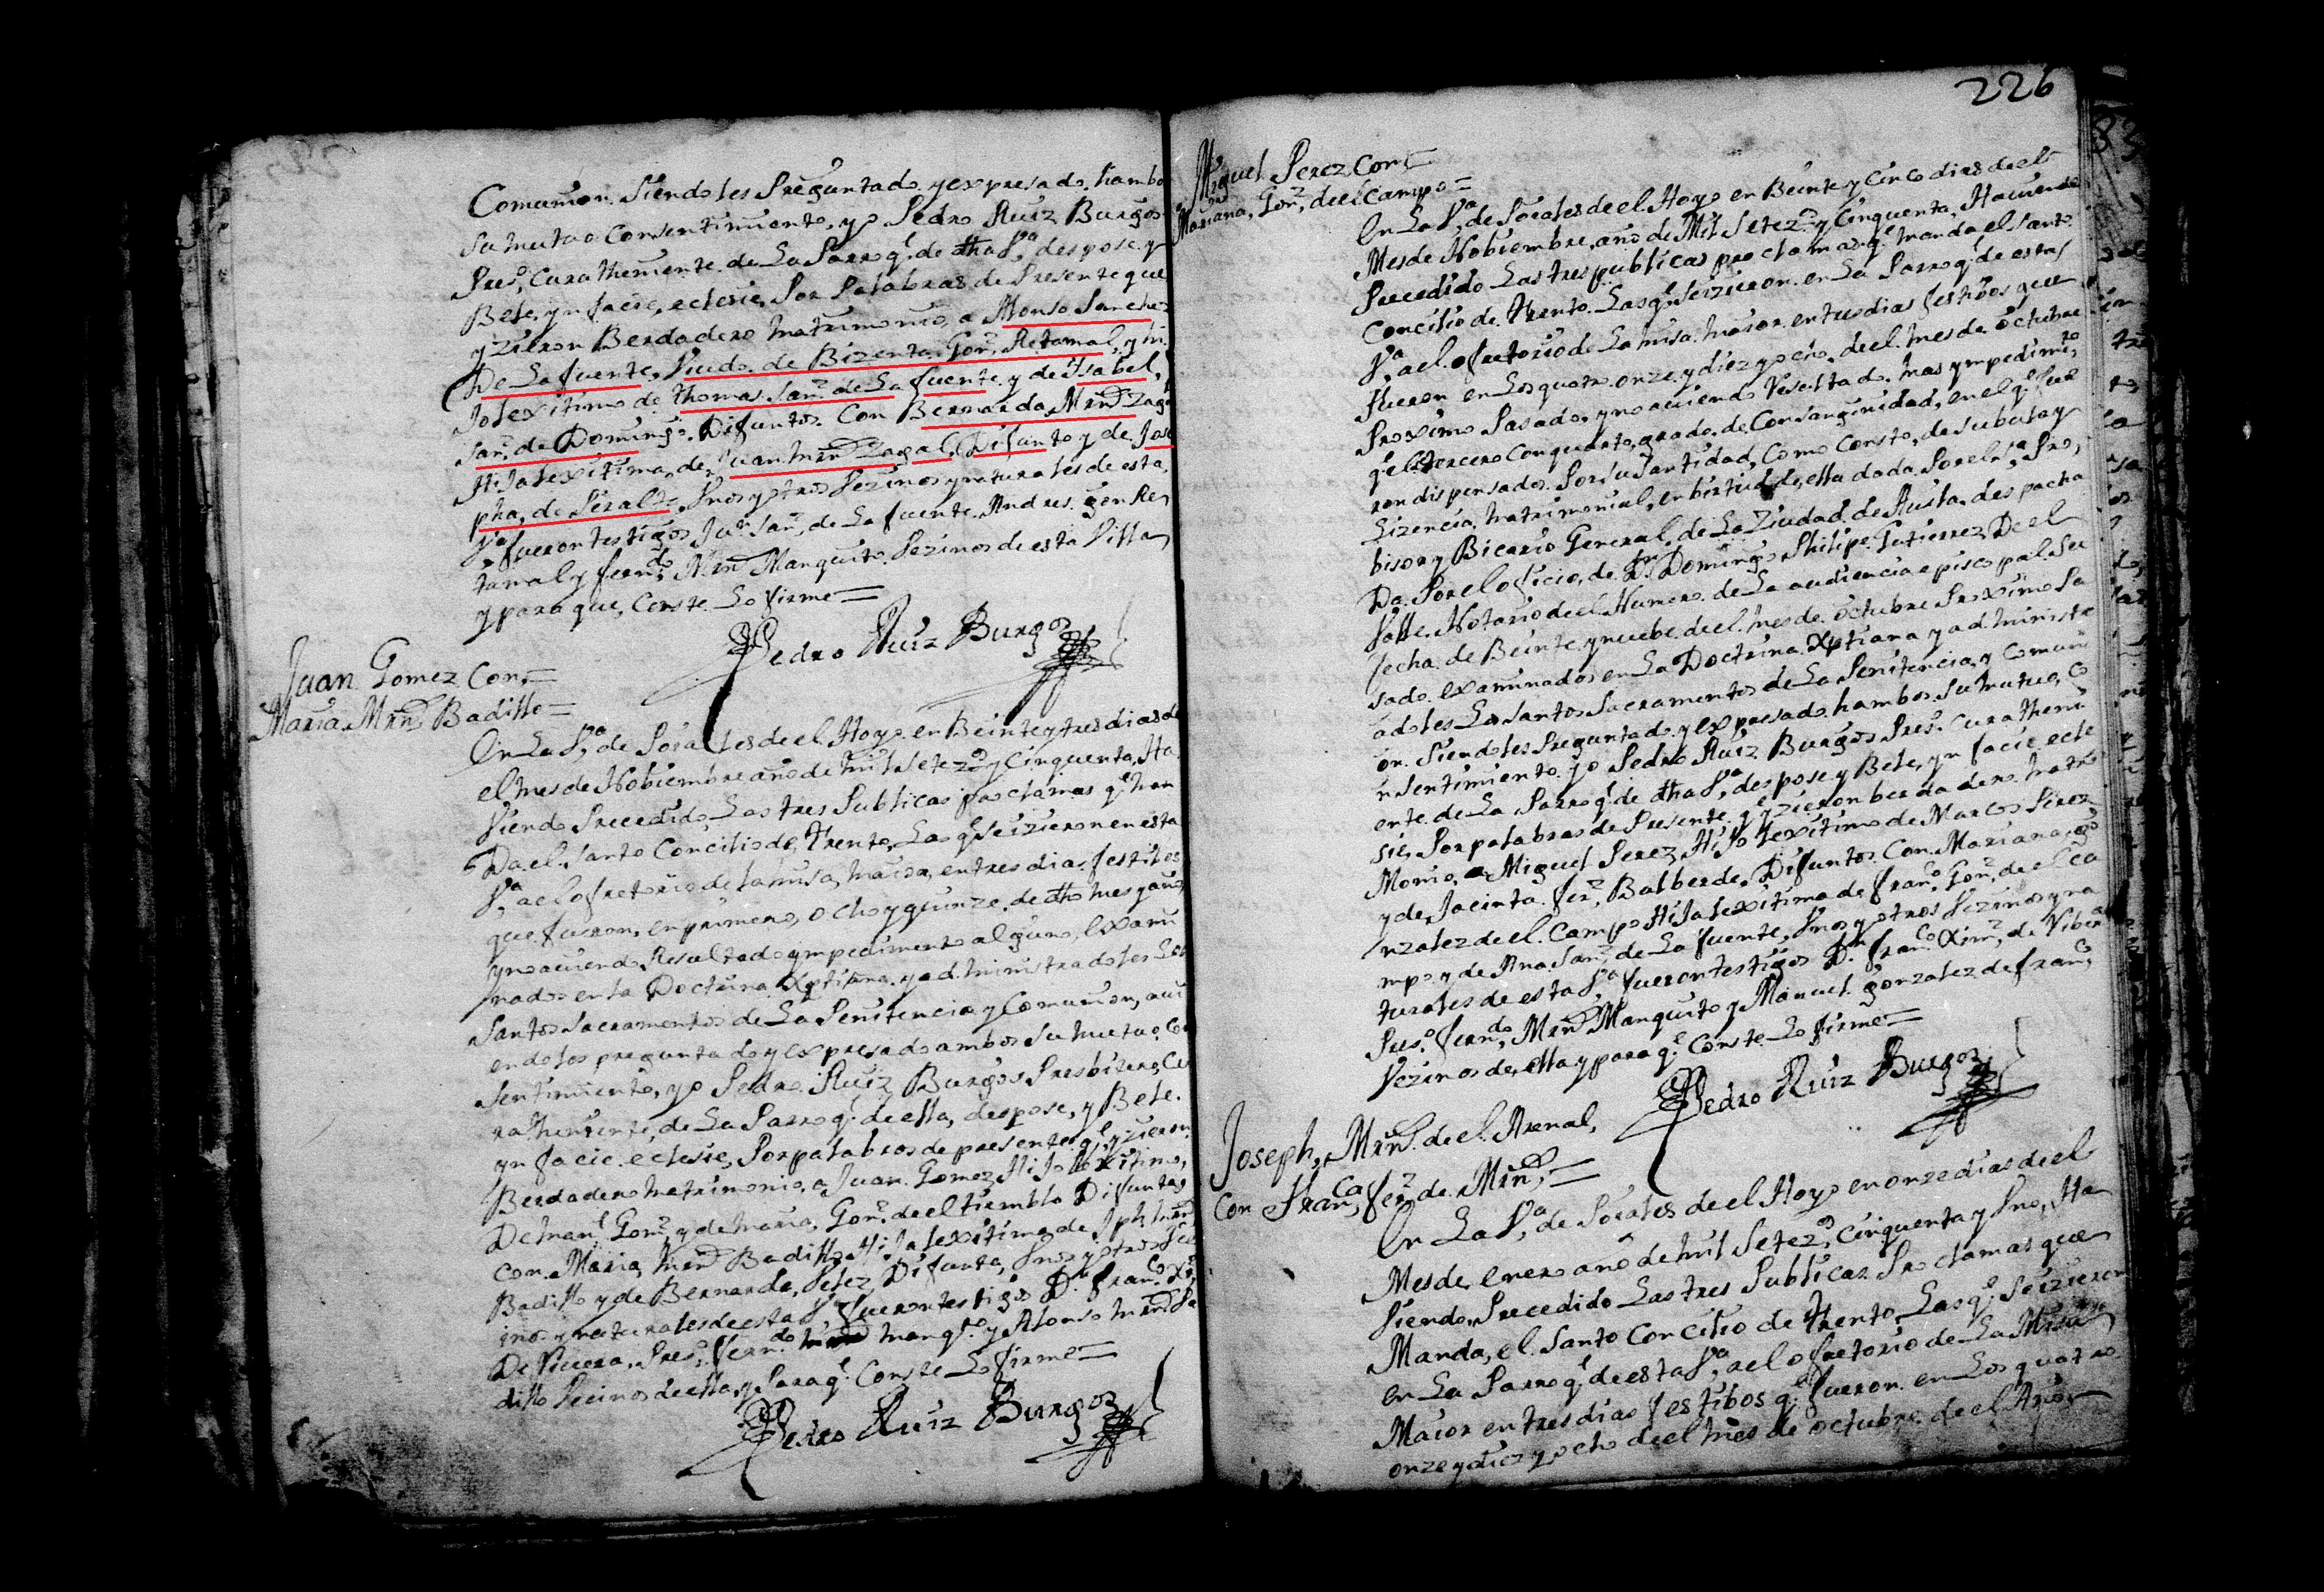 Comunion. Siendoles Preguntado, y expresado. hambos
Su mutuo Consentimiento, yo Pedro Ruiz Burgos
Pres.º Cura theniente de La Parroq.l de dtha V.a despose y
Bele, yn facie, eclesie, Por Palabras de Presente que
yzieron Berdadero Matrimonio, a Alonso Sanchez
De La fuente, Viudo. de Bizenta Gon.z Retamal, y hi
Jo lexitimo de thomas San.z de La fuente y de Isabel,
San.z de Domingo. Difuntos. Con Bernarda Mrn Zaga
Hija lexitima, de Juan Mrn Zagal, Difunto y de Jose
pha, de Peralta, Unos y otros Vezinos y naturales de esta
V.a fueron testigos Ju.n San.z de La fuente. Andres. gon Re
tamal y fern.do Mrn Manquito. Vezinos de esta Villa
y para que, Conste Lo firme=
Pedro Ruiz Burgos
Juan Gomez Con,=
Maria Mrn Badillo=
En La V.a de Poza les de el Hoyo en Beinte y tres dias de
el mes de Nobiembre año de mil Setez.os y Cinquenta, Ha
Viendo Precedido Las tres Publicas proclamas q.e man
Da el Santo Concilio de, trento, Las q.e Se izieron en esta
V.a ael ofretorio de la misa, maior, en tres dias festibos
que fueron, en primero, ocho y quinze. de dtho mes y año
y no aviendo Resultado ympedimento alguno, exami
nados en la Doctrina Xptiana. y ad.ministradoles Los
Santos Sacramentos de La Penitencia y Comunion, avi
endoles preguntado y expresado ambos Su mutuo Con
sentimiento, yo Pedro. Ruiz Burgos Presbitero, Cu
ra theniente, de La Parroq.l de ella, despose, y Bele.
yn facie. eclesie, Por palabras de presente q.e yzieron
Berdadero matrimonio, a Juan Gomez, Hijo lexitimo,
De man.l Gom.z y de maria, Gon.z de el tiemblo Difuntas
con. Maria, Mrn Badillo, Hija lexitima de Jph mrn
Badillo y de Bernarda, Pelez Difunta, Unos y otros Vez
inos y naturales de esta V.a fueron testigos D.n fran.co Xi.z
De Vivera, Pres.º fern.do Manq.to y Alonso mrn Ba
dillo Vecinos de ella, y Para q.e Conste Lo firme=
Pedro Ruiz Burgos
226
Miguel Perez Con=
Mariana, Gon.z de el Campo=
En La V.a de Pozales de el Hoyo en Beinte y Cinco dias de el
Mes de Nobiembre, año de Mil Setez.os y Cinquenta, Haviendo
Precedido Las tres publicas proclamas q.e manda el Santo
Concilio de, trento. Las q.e Se izieron. en La Parroq.l de esta
V.a ael ofretorio de La misa. maior. en tres dias festibos que
fueron en Los quatro onze y diez y ocho. de el. mes de octubre
Proximo Pasado, y no aviendo Resultado. mas ympedim.to
q.e el tercero Con quarto, grado. de Consanginidad, en el q.e fue
ron dispensados. Por Su Santidad, Como Consto, de Su bula y
Lizencia, matrimonial, en birtud de, ella dada. Por el S.r Pro,
bisor y Bicario General. de La Ziudad de Auila. despacha
Da. Por el oficio, de D.n Domingo Phelipe. Gutierrez De el
Valle. Notario de el Numero. de La audiencia episcopal. Su
fecha. de Beinte y nuebe. de el mes de. octubre Proximo Pa
sado. examinados en La Doctrina. Xptiana y ad.ministr
adoles Los Santos Sacramentos de La Penitencia y Comuni
on. Siendoles Preguntado y expresado hambos. Su mutuo, Co
nsentimiento. yo Pedro Ruiz Burgos Pres.º Cura theni
ente de La Parroq.l de dtha V.a despose y Bele, yn facie ecle
sie, Por palabras de Presente q.e yzieron berdadero matri
Monio, a Miguel Perez, Hijo lexitimo de Marcos Perez
y de, Jacinta. fer.z Balberde. Difuntos. Con. Mariana, go
nzalez de el. Campo. Hija lexitima de fran.co Gon.z de el Ca
mpo y de Ana. San.z de La fuente, Unos y otros Vezinos y na
turales de esta V.a fueron testigos D.n fran.co Xim.z de Viber
Pres.º fern.do Mrn Manquito y Manuel. gonzalez de fran.co
Vezinos de, ella y para q.e Conste Lo firme=
Pedro Ruiz Burgos
Joseph, Mrn. de el. Arenal,
Con Fran.ca fer.z de. Mrn,=
En La V.a de Pozales de el Hoyo en onze dias de el
Mes de, enero año de mil Setez.os Cinquenta y Uno, Ha
Viendo, Precedido Las tres Publicas Proclamas que
Manda, el. Santo Concilio de trento, Las q.e Se izieron
en La Parroq.l de esta V.a ael ofretorio de La Misa
Maior en tres dias festibos q.e fueron. en Los quatro
onze y diez y ocho de el mes de octubre de el Año,